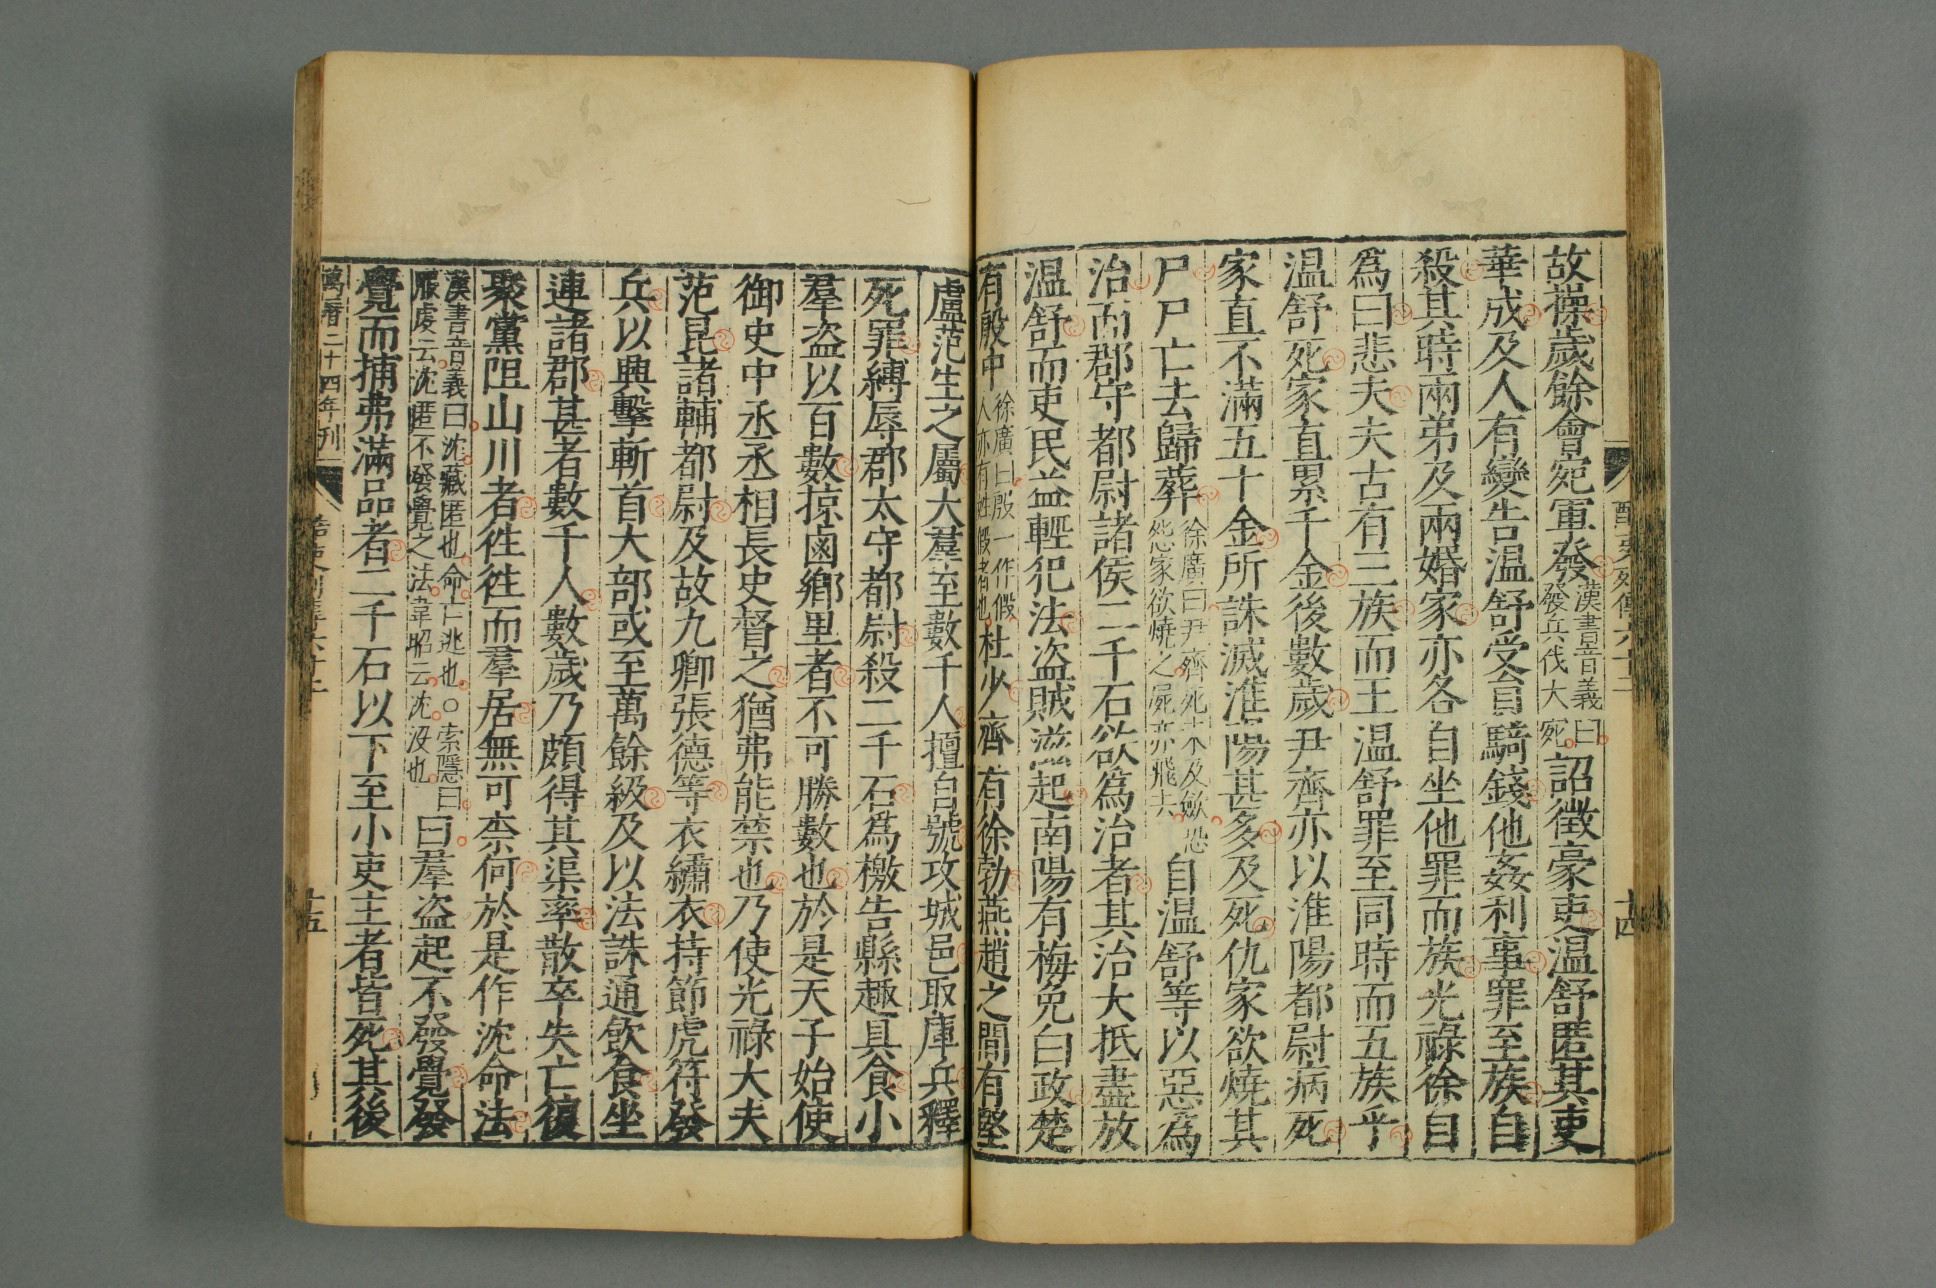 酷吏列傳六十二
十四
故操歲餘會宛軍發漢書音義曰發兵伐大宛詔徵豪吏温舒匿其吏
華成及人有變告温舒受員騎錢他姦利事罪至族自
殺其時兩弟及兩婚家亦各自坐他罪而族光祿徐自
爲曰悲夫夫古有三族而王温舒罪至同時而五族乎
温舒死家直累千金後數歲尹齊亦以淮陽都尉病死
家直不滿五十金所誅滅淮陽甚多及死仇家欲燒其
尸尸亡去歸葬徐廣曰尹齊死未及斂恐怨家欲燒之屍亦飛去自温舒等以惡爲
治而郡守都尉諸侯二千石欲爲治者其治大抵盡放
温舒而吏民益輕犯法盗賊滋起南陽有梅免白政楚
有殷中徐廣曰殷一作假人亦有姓假者也杜少齊有徐勃燕趙之間有堅
盧范生之屬大羣至數千人擅自號攻城邑取庫兵釋
死罪縛辱郡太守都尉殺二千石爲檄告縣趣具食小
羣盗以百數掠鹵鄉里者不可勝數也於是天子始使
御史中丞丞相長史督之猶弗能禁也乃使光祿大夫
范昆諸輔都尉及故九卿張德等衣繡衣持節虎符發
兵以興擊斬首大部或至萬餘級及以法誅通飲食坐
連諸郡甚者數千人數歲乃頗得其渠率散卒失亡復
聚黨阻山川者往往而羣居無可柰何於是作沈命法
漢書音義曰沈藏匿也命亡逃也○索隱曰服虔云沈匿不發覺之法韋昭云沈没也曰羣盗起不發覺發
覺而捕弗滿品者二千石以下至小吏主者皆死其後
萬曆二十四年刊
酷吏列傳六十二
十五